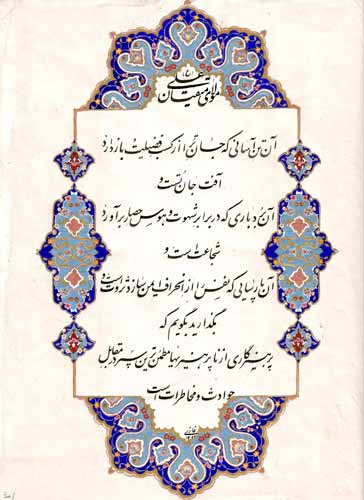 مولای متقیان علی (ع)
آن تن آسانی که جان ترا از کسب فضیلت باز دارد
آفت جان تست و
آن بردباری که در برابر شهوت و هوس حصار برآورد
شجاعت است و
آن پارسائی که نفس را از انحراف ایمن سازد ثروت است و
بگذارید بگویم که
پرهیزگاری از ناپرهیزیها مطمئن‌ترین سپر در مقابل
حوادث و مخاطرات است